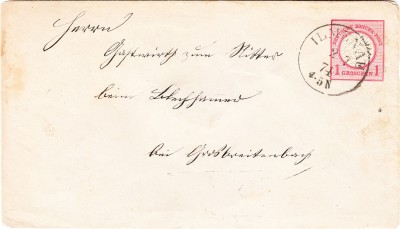 Herrn
Gastwirth zum Ritter
beim Blechhamed
bei Großbreitenbach
ILMENAU
74
4-5N
DEUTSCHE REICHS-POST
1 GROSCHEN 1